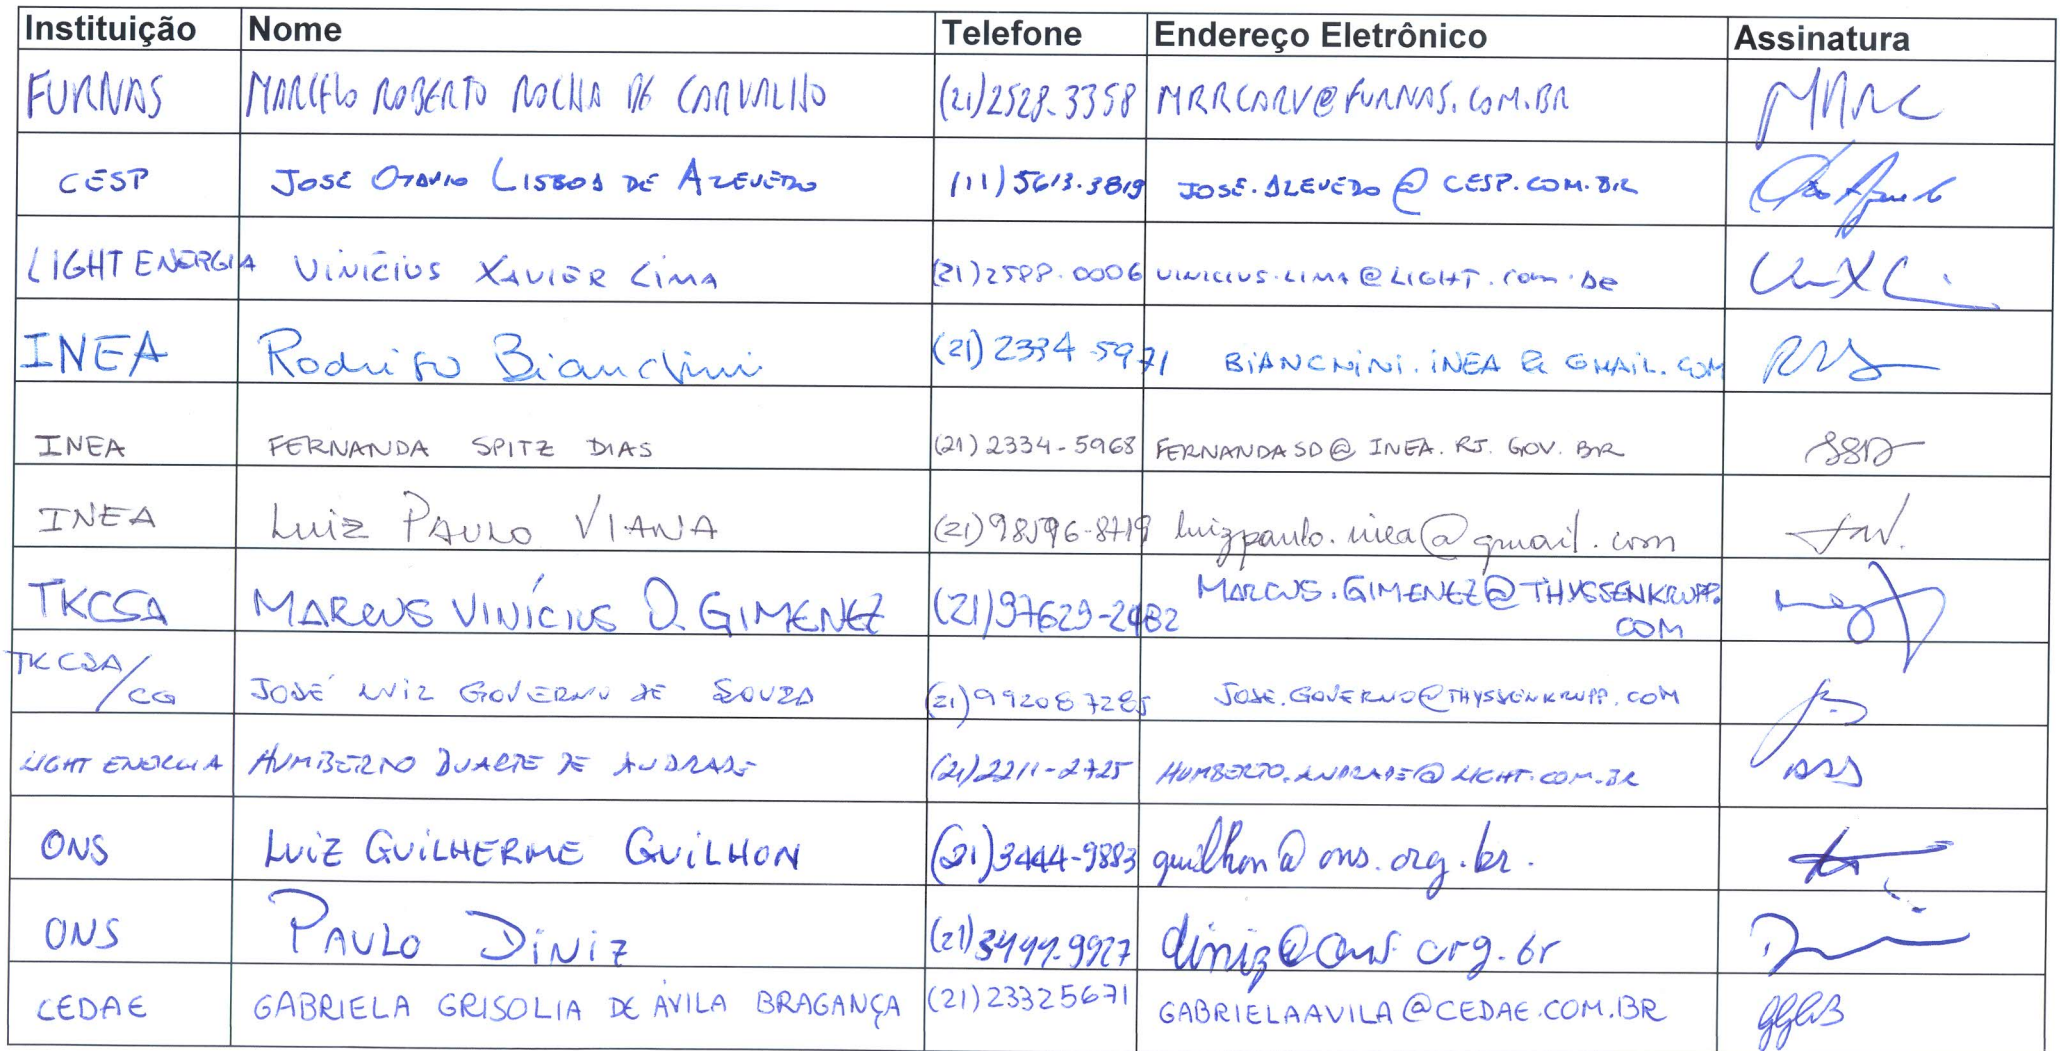 Instituição Nome Telefone Endereço Eletrônico Assinatura
FURNAS MARCELO ROBERTO ROCHA DE CARVALHO (21)2528-3358 MRRCARV@FURNAS.COM.BR MRRC
CESP JOSÉ OTAVIO LISBOA DE AZEVEDO (11)5613.3819 JOSE.AZEVEDO@CESP.COM.BR
LIGHT ENERGIA VINÍCIUS XAVIER LIMA (21)2588.0006 VINICIUS.LIMA@LIGHT.com.br
INEA Rodrigo Bianchini (21)2334-5971 BIANCHINI.INEA@GMAIL.COM
INEA FERNANDA SPITZ DIAS (21)2334-5968 FERNANDASD@INEA.RJ.GOV.BR
INEA Luiz PAULO VIANA (21)98596-8719 luizpaulo.inea@gmail.com
TKCSA MARCUS VINÍCIUS O. GIMENEZ (21)97629-2482 MARCUS.GIMENEZ@THYSSENKRUPP.
COM
TKCSA/CG JOSÉ LUIZ GOVERNO DE SOUZA (21)992087285 JOSE.GOVERNO@THYSSENKRUPP.COM
LIGHT ENERGIA HUMBERTO DUARTE DE ANDRADE (21)2211-2725 HUMBERTO.ANDRADE@LIGHT.COM.BR
ONS LUIZ GUILHERME GUILHON (21)3444-9883 guilhon@ons.org.br.
ONS PAULO DINIZ (21)3444.9927 diniz@ons.org.br
CEDAE GABRIELA GRISOLIA DE ÁVILA BRAGANÇA (21)23325671 GABRIELAAVILA@CEDAE.COM.BR GGAB